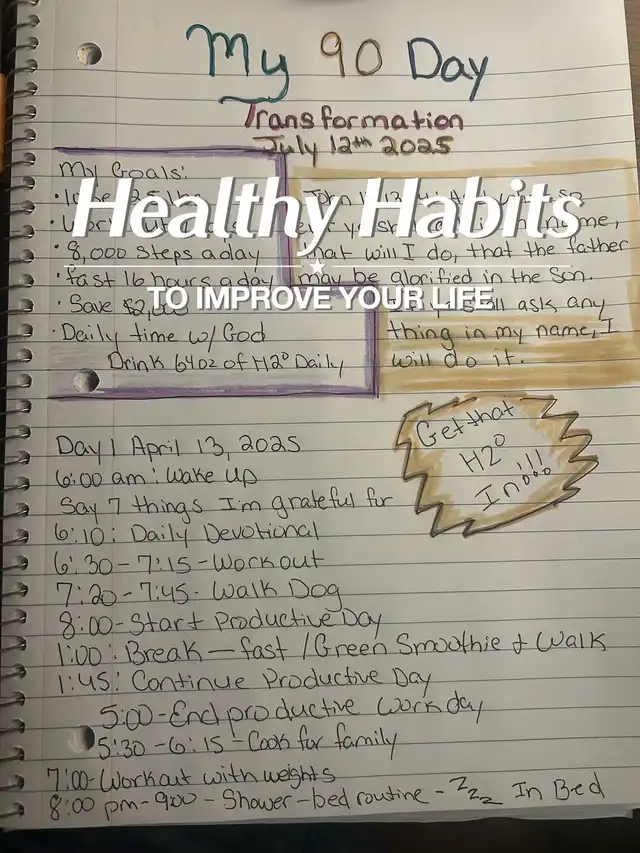 My 90 Day
Transformation
July 12th 2025
My Goals:
Healthy Habits
TO IMPROVE YOUR LIFE
• 8,000 steps a day
• fast 16 hours a day
• Save
• Daily time w/ God
Drink 64oz of H2O Daily
John
name,
that will I do, that the father
may be glorified in the Son.
ask any
thing in my name, I
will do it.
Get that
H2O
In!!!
Day 1 April 13, 2025
6:00 am: Wake up
Say 7 things I'm grateful for
6:10: Daily Devotional
6:30-7:15-Workout
7:20-7:45- Walk Dog
8:00-Start Productive Day
1:00: Break—fast /Green Smoothie & Walk
1:45: Continue Productive Day
5:00-End productive work day
5:30-6:15-Cook for family
7:00-Workout with weights
8:00 pm-900-Shower-bed routine-Zzzz In Bed